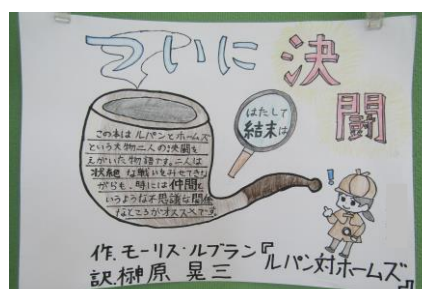 ついに決闘
はたして
結末は
この本はルパンとホームズ
という大物二人の決闘を
えがいた物語です。二人は
壮絶な戦いをみせてきな
がらも、時には仲間と
いうような不思議な関係
なところがオススメです。
!
作.モーリス・ルブラン『ルパン対ホームズ』
訳.榊原晃三